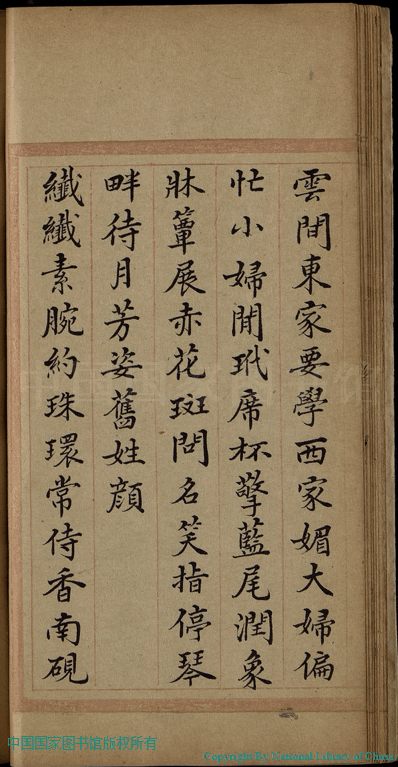 雲間東家要學西家媚大婦偏
忙小婦閒玳席杯擎藍尾潤象
牀簟展赤花斑問名笑指停琴
畔待月芳姿舊姓顔
纖纖素腕約珠環常侍香南硯
中国国家图书馆版权所有
Copyright By National Library of China